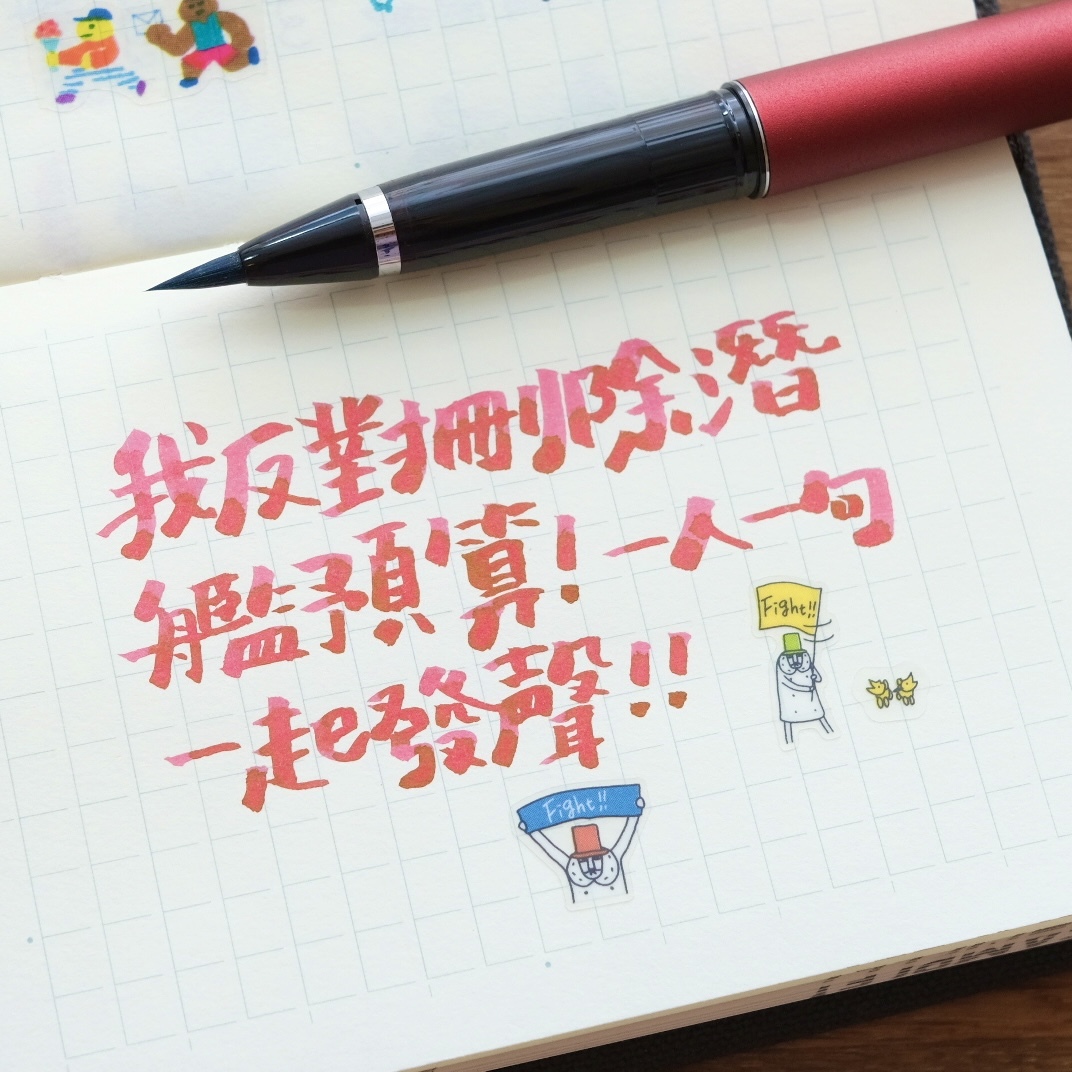 我反對刪除潛
艦預算！一人一句
一起發聲！！
Fight!!
Fight!!